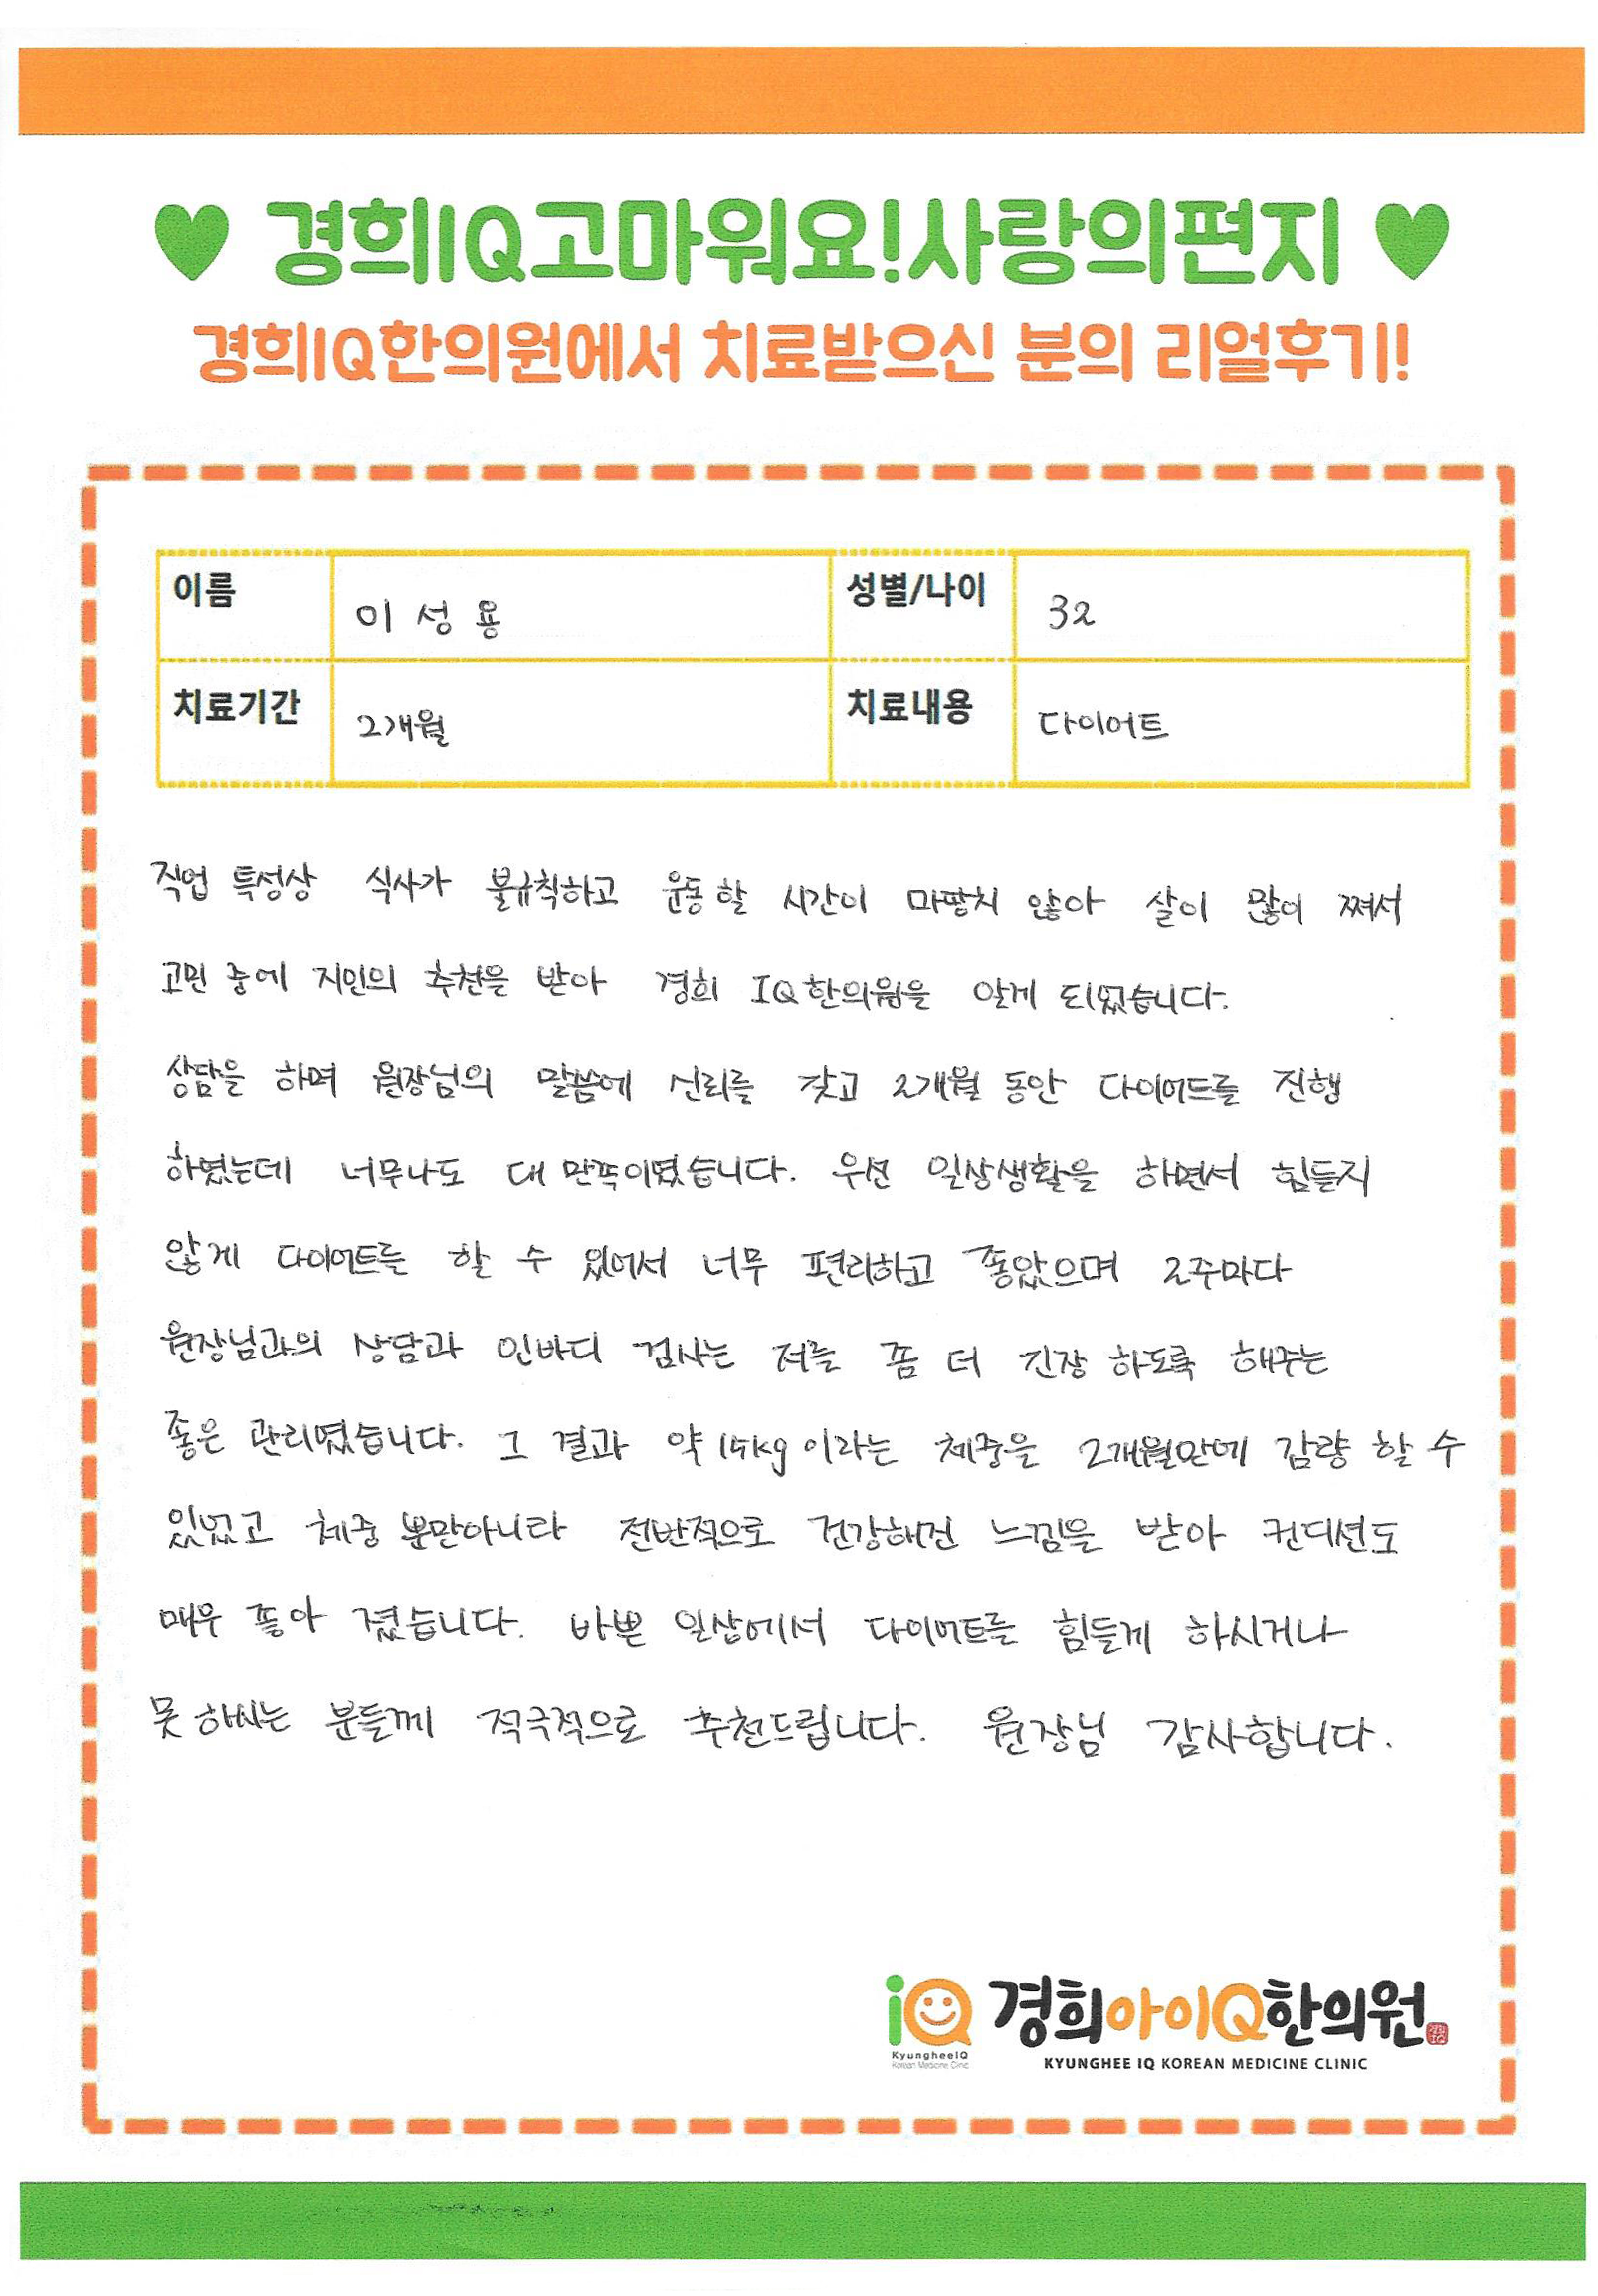 ♥ 경희IQ고마워요!사랑의편지 ♥
경희IQ한의원에서 치료받으신 분의 리얼후기!
이름 이성용 성별/나이 32
치료기간 2개월 치료내용 다이어트
직업 특성상 식사가 불규칙하고 운동할 시간이 마땅치 않아 살이 많이 쪄서
고민 중에 지인의 추천을 받아 경희 IQ한의원을 알게 되었습니다.
상담을 하며 원장님의 말씀에 신뢰를 갖고 2개월 동안 다이어트를 진행
하였는데 너무나도 대 만족이였습니다. 우선 일상생활을 하면서 힘들지
않게 다이어트를 할 수 있어서 너무 편리하고 좋았으며 2주마다
원장님과의 상담과 인바디 검사는 저를 좀 더 긴장 하도록 해주는
좋은 관리였습니다. 그 결과 약 이라는 체중을 2개월만에 감량 할 수
있었고 체중 뿐만아니라 전반적으로 건강해진 느낌을 받아 컨디션도
매우 좋아 졌습니다. 바쁜 일상에서 다이어트를 힘들게 하시거나
못 하시는 분들께 적극적으로 추천드립니다. 원장님 감사합니다.
iQ 경희아이Q한의원
KyungheeIQ
Korean Medicine Clinic
KYUNGHEE IQ KOREAN MEDICINE CLINIC